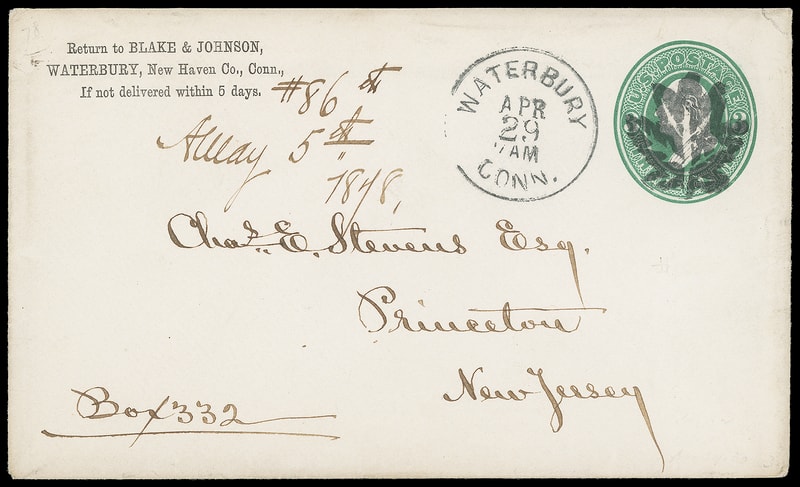 Return to BLAKE & JOHNSON,
WATERBURY, New Haven Co., Conn.,
If not delivered within 5 days.
#86th
May 5th
1878,
WATERBURY
APR
29
7AM
CONN.
U.S. POSTAGE
Chas. E. Stevens Esq.
Princeton
New Jersey
Box 332